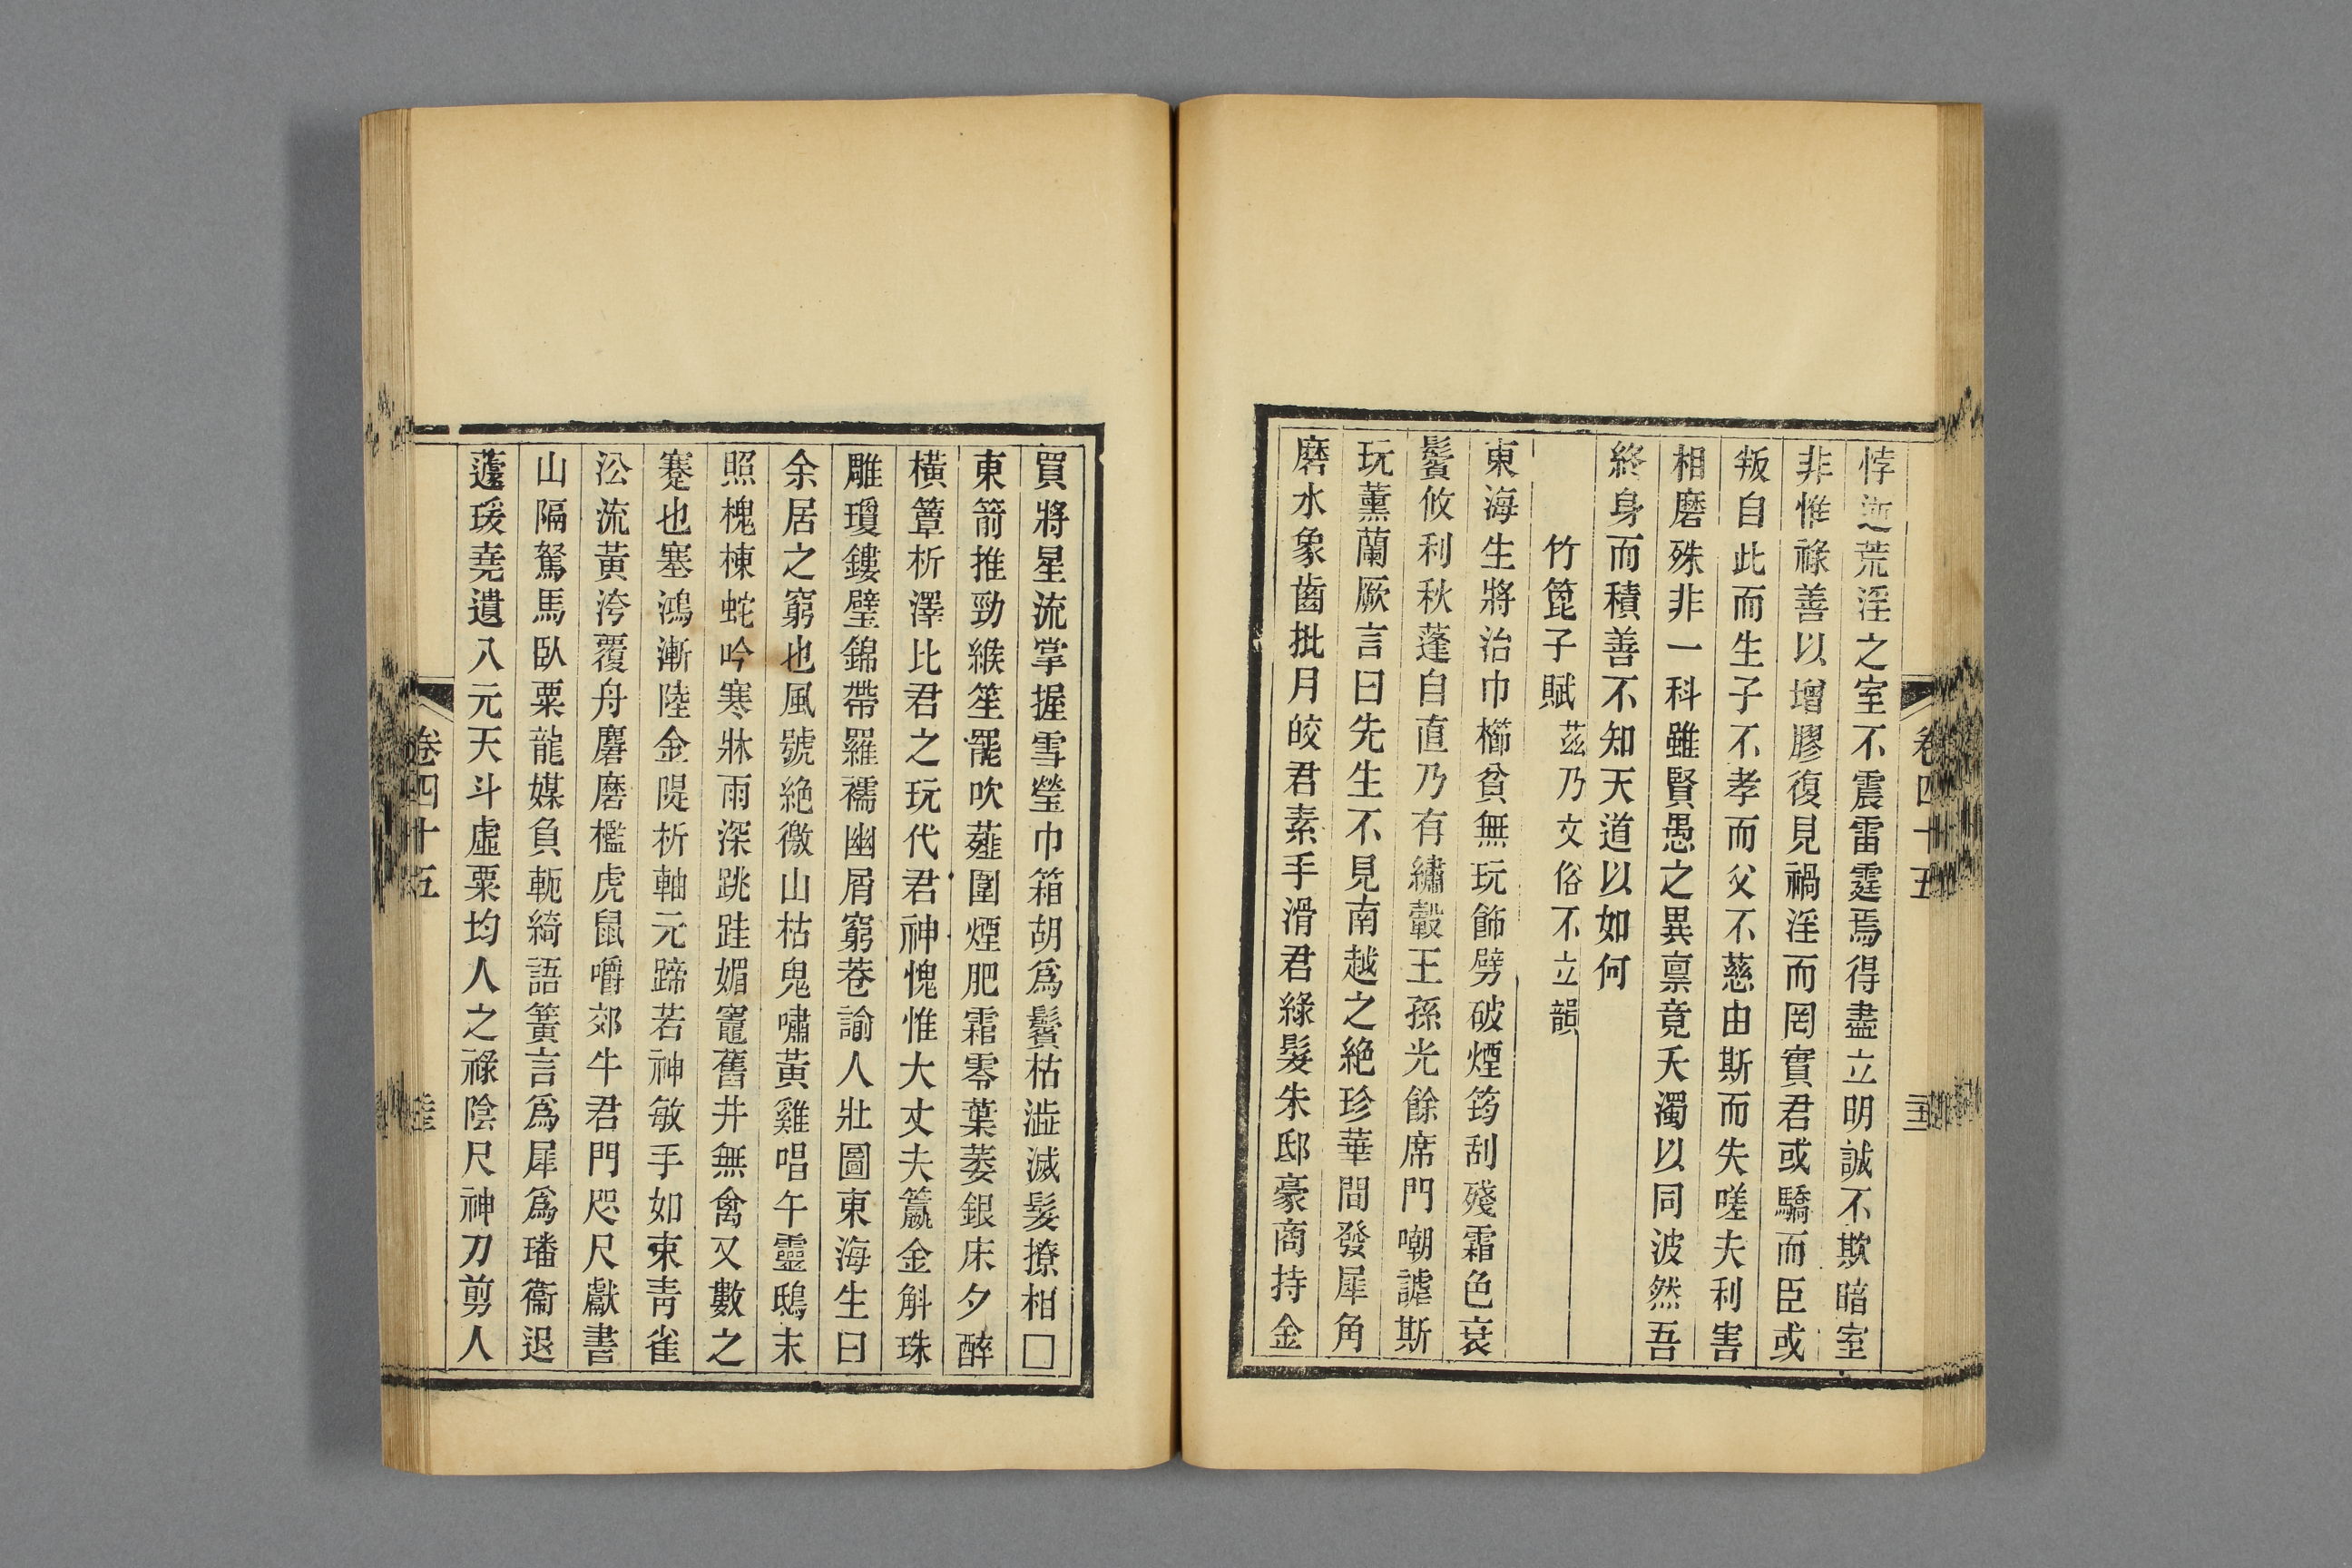 悖逝荒淫之室不震雷霆焉得盡立明誠不欺暗室
非惟祿善以增膠復見禍淫而罔實君或驕而臣或
叛自此而生子不孝而父不慈由斯而失嗟夫利害
相磨殊非一科雖賢愚之異稟竟夭濁以同波然吾
終身而積善不知天道以如何
竹篦子賦茲乃文俗不立韻
東海生將治巾櫛貧無玩飾劈破煙筠刮殘霜色衰
鬢攸利秋蓬自直乃有繡轂王孫光餘席門嘲謔斯
玩薰蘭厥言曰先生不見南越之絶珍華間發犀角
磨水象齒批月皎君素手滑君綠髮朱邸豪商持金
買將星流掌握雪瑩巾箱胡爲鬢枯澁滅髮撩相□
東箭推勁緱笙罷吹薤圍煙肥霜零葉萎銀床夕醉
橫簟析澤比君之玩代君神愧惟大丈夫籝金斛珠
雕瓊鏤璧錦帶羅襦幽屑窮巷諭人壯圖東海生曰
余居之窮也風號絶徼山枯鬼嘯黃雞唱午靈鴟末
照槐楝蛇吟寒牀雨深跳跬媚竈舊井無禽又數之
蹇也塞鴻漸陸金隄析軸元蹄若神敏手如束靑雀
㳂流黃洿覆舟麕磨檻虎鼠嚼郊牛君門咫尺獻書
山隔駑馬臥粟龍媒負軛綺語簧言爲犀爲璠衞退
蘧瑗堯遺八元天斗虛粟均人之祿陰尺神刀剪人
卷四十五
卷四十五